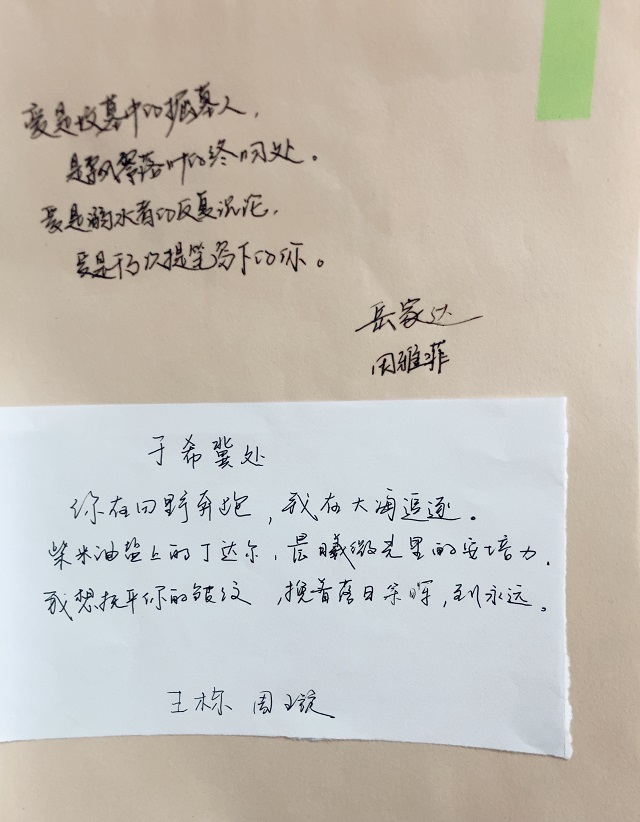 爱是坟墓中的掘墓人，
是飘零落叶的终归处。
爱是溺水者的反复沉沦，
爱是再次提笔写下的你。
岳家达
周雅菲
于希冀处
你在田野奔跑，我在大海追逐。
柴米油盐上的丁达尔，晨曦微光里的安培力，
我想抚平你的皱纹，挽着落日余晖，到永远。
王栋 周